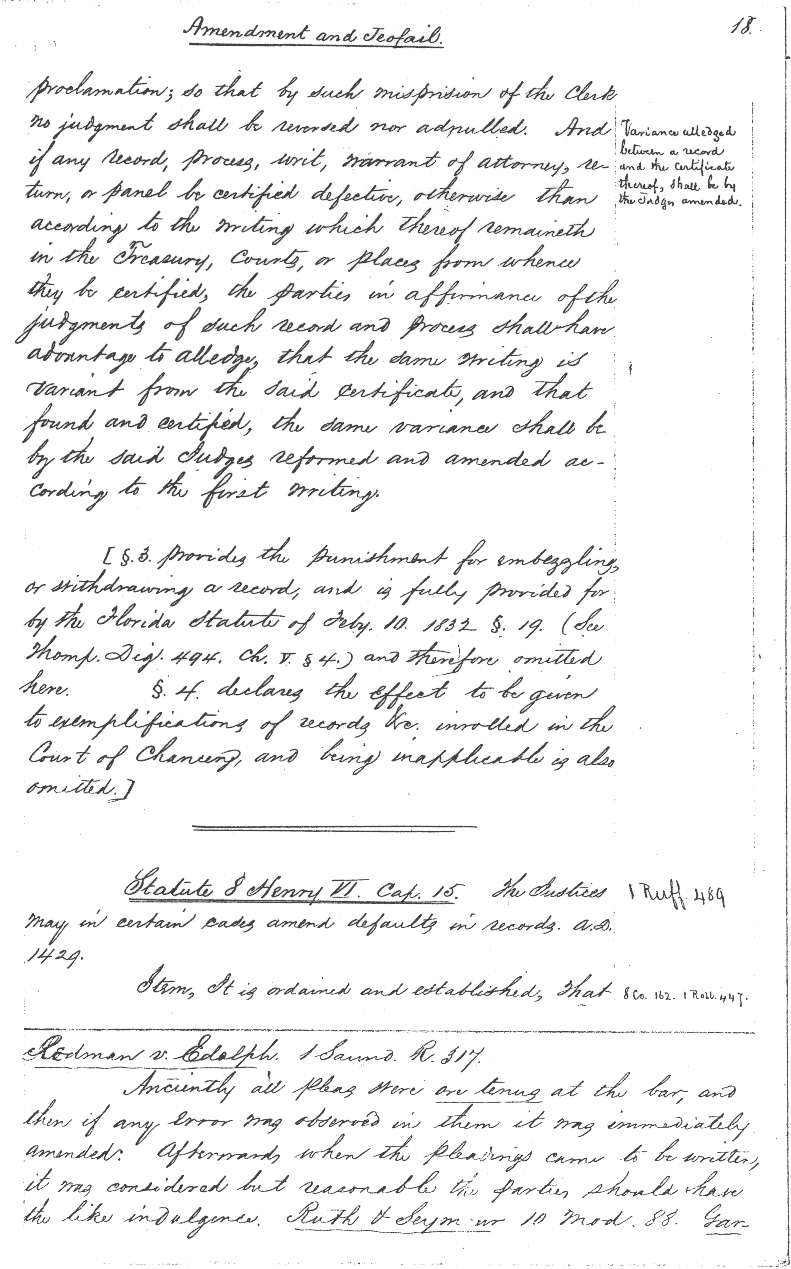 Amendment and Jeofail.
18.
proclamation; so that by such misprision of the Clerk
no judgment shall be reversed nor adnulled. And
if any record, process, writ, warrant of attorney, re-
turn, or panel be certified defective, otherwise than
according to the writing which thereof remaineth
in the Treasury, Courts, or places from whence
they be certified, the parties in affirmance of the
judgments of such record and process shall have
advantage to alledge, that the same writing is
variant from the said certificate, and that
found and certified, the same variance shall be
by the said Judges reformed and amended ac-
cording to the first writing.
Variance alledged
between a record
and the certificate
thereof, shall be by
the Judges amended.
[§.3. provides the punishment for embezzling,
or withdrawing a record, and is fully provided for
by the Florida Statute of Feby. 10. 1832 §. 19. (See
Thomp. Dig. 494. Ch. V. § 4.) and therefore omitted
here. §. 4. declares the effect to be given
to exemplifications of records &c. inrolled in the
Court of Chancery, and being inapplicable is also
omitted.]
Statute 8 Henry VI. Cap. 15. The Justices
may in certain cases amend defaults in records. A.D.
1429.
1 Ruff. 489
Item, It is ordained and established, That
8 Co. 162. 1 Roll. 447.
Redman v. Edolph. 1 Saund. R. 317.
Anciently all pleas were ore tenus at the bar, and
then if any error was observed in them it was immediately
amended. Afterwards when the pleadings came to be written,
it was considered but reasonable the parties should have
the like indulgence. Rush & Seymour 10 Mod. 88. Gar